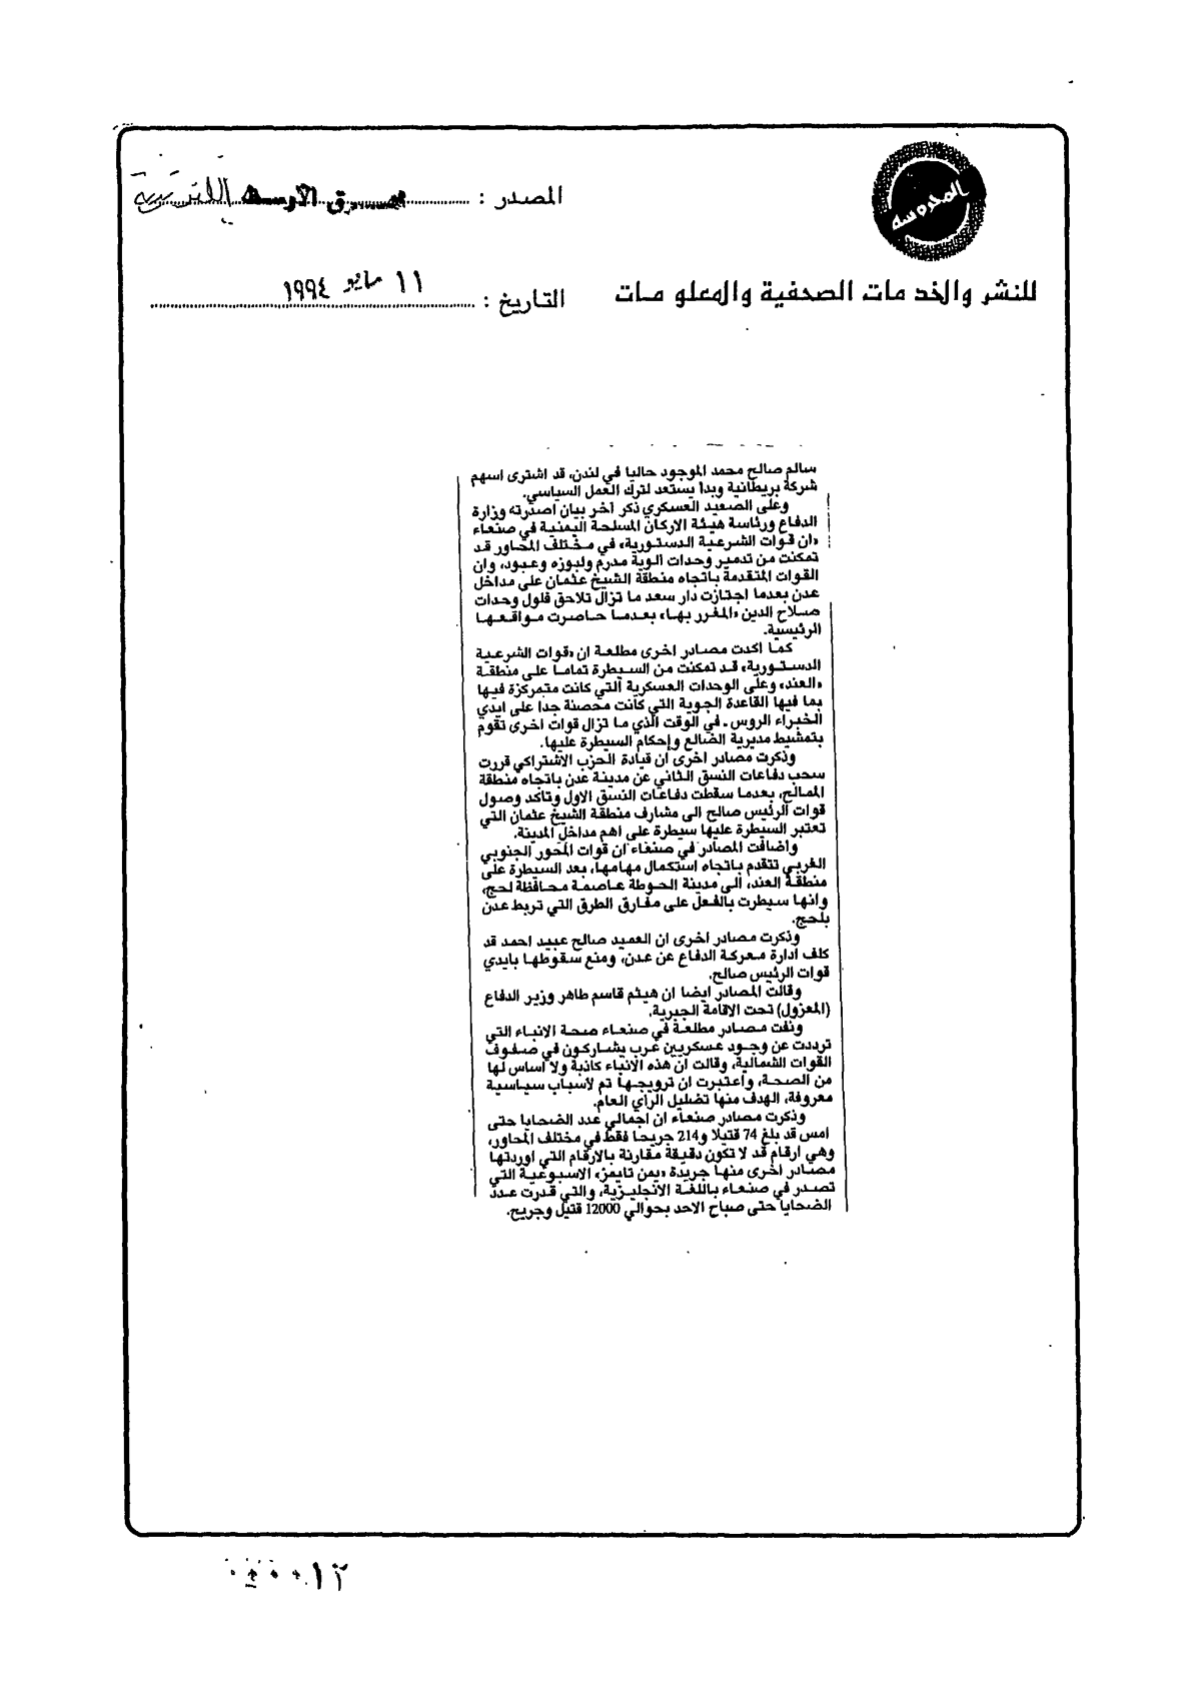 المحروسه
للنشر والخدمات الصحفية والمعلومات
المصدر : الشرق الأوسط اللندنية
التاريخ : ١١ مايو ١٩٩٤
سالم صالح محمد الموجود حاليا في لندن، قد اشترى اسهم
شركة بريطانية وبدا يستعد لترك العمل السياسي.
وعلى الصعيد العسكري ذكر اخر بيان اصدرته وزارة
الدفاع ورئاسة هيئة الاركان المسلحة اليمنية في صنعاء
«ان قوات الشرعية الدستورية» في مختلف المحاور قد
تمكنت من تدمير وحدات الوية مدرم ولبوزه وعبود، وان
القوات المتقدمة باتجاه منطقة الشيخ عثمان على مداخل
عدن بعدما اجتازت دار سعد ما تزال تلاحق فلول وحدات
صلاح الدين «المغرر بها» بعدما حاصرت مواقعها
الرئيسية.
كما اكدت مصادر اخرى مطلعة ان «قوات الشرعية
الدستورية» قد تمكنت من السيطرة تماما على منطقة
«العند» وعلى الوحدات العسكرية التي كانت متمركزة فيها
بما فيها القاعدة الجوية التي كانت محصنة جدا على ايدي
الخبراء الروس. في الوقت الذي ما تزال قوات اخرى تقوم
بتمشيط مديرية الضالع وإحكام السيطرة عليها.
وذكرت مصادر اخرى ان قيادة الحزب الاشتراكي قررت
سحب دفاعات النسق الثاني عن مدينة عدن باتجاه منطقة
المصالح، بعدما سقطت دفاعات النسق الاول وتاكد وصول
قوات الرئيس صالح الى مشارف منطقة الشيخ عثمان التي
تعتبر السيطرة عليها سيطرة على اهم مداخل المدينة.
واضافت المصادر في صنعاء ان قوات المحور الجنوبي
الغربي تتقدم باتجاه استكمال مهامها، بعد السيطرة على
منطقة العند، الى مدينة الحوطة عاصمة محافظة لحج،
وانها سيطرت بالفعل على مفارق الطرق التي تربط عدن
بلحج.
وذكرت مصادر اخرى ان العميد صالح عبيد احمد قد
كلف ادارة معركة الدفاع عن عدن، ومنع سقوطها بايدي
قوات الرئيس صالح.
وقالت المصادر ايضا ان هيثم قاسم طاهر وزير الدفاع
(المعزول) تحت الاقامة الجبرية.
ونفت مصادر مطلعة في صنعاء صحة الانباء التي
ترددت عن وجود عسكريين عرب يشاركون في صفوف
القوات الشمالية، وقالت ان هذه الانباء كاذبة ولا اساس لها
من الصحة، واعتبرت ان ترويجها تم لأسباب سياسية
معروفة، الهدف منها تضليل الراي العام.
وذكرت مصادر صنعاء ان اجمالي عدد الضحايا حتى
امس قد بلغ 74 قتيلا و214 جريحا فقط في مختلف المحاور،
وهي ارقام قد لا تكون دقيقة مقارنة بالارقام التي اوردتها
مصادر اخرى منها جريدة «يمن تايمز» الاسبوعية التي
تصدر في صنعاء باللغة الانجليزية، والتي قدرت عدد
الضحايا حتى صباح الاحد بحوالي 12000 قتيل وجريح.